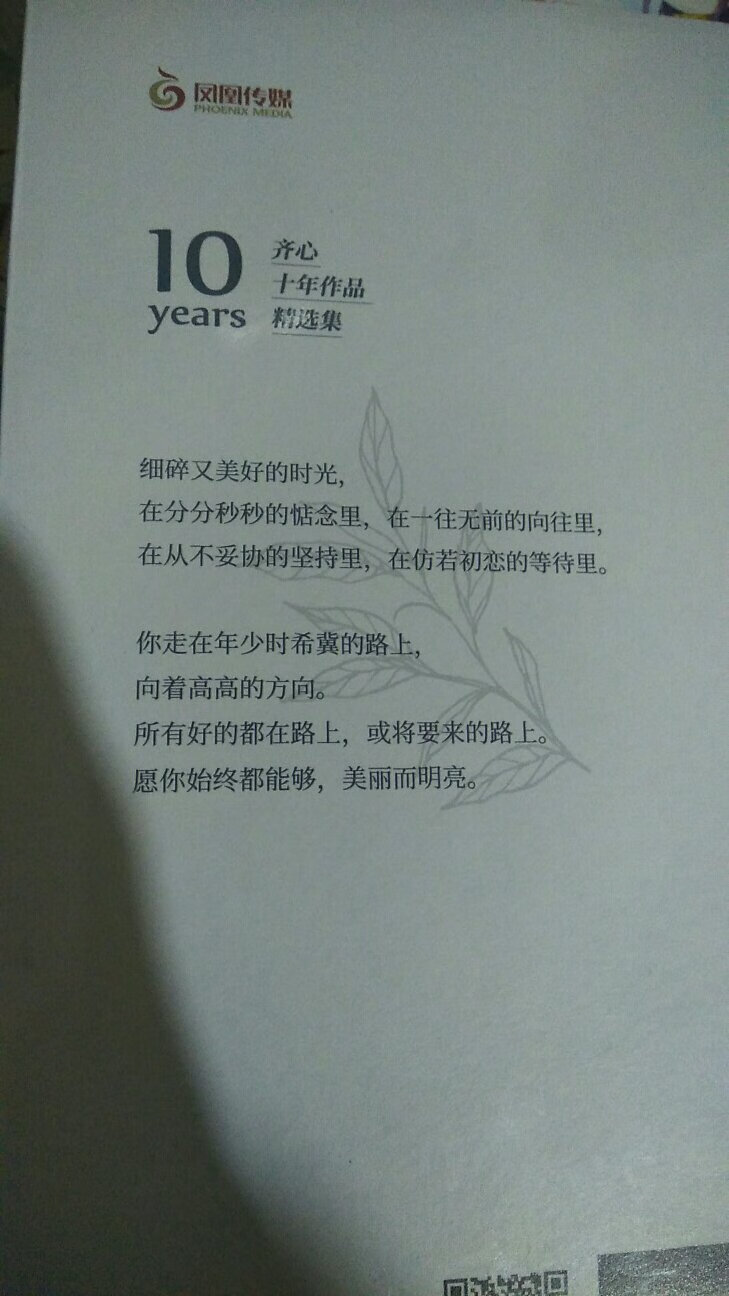 凤凰传媒
PHOENIX MEDIA
10
years
齐心
十年作品
精选集
细碎又美好的时光，
在分分秒秒的惦念里，在一往无前的向往里，
在从不妥协的坚持里，在仿若初恋的等待里。
你走在年少时希冀的路上，
向着高高的方向。
所有好的都在路上，或将要来的路上。
愿你始终都能够，美丽而明亮。